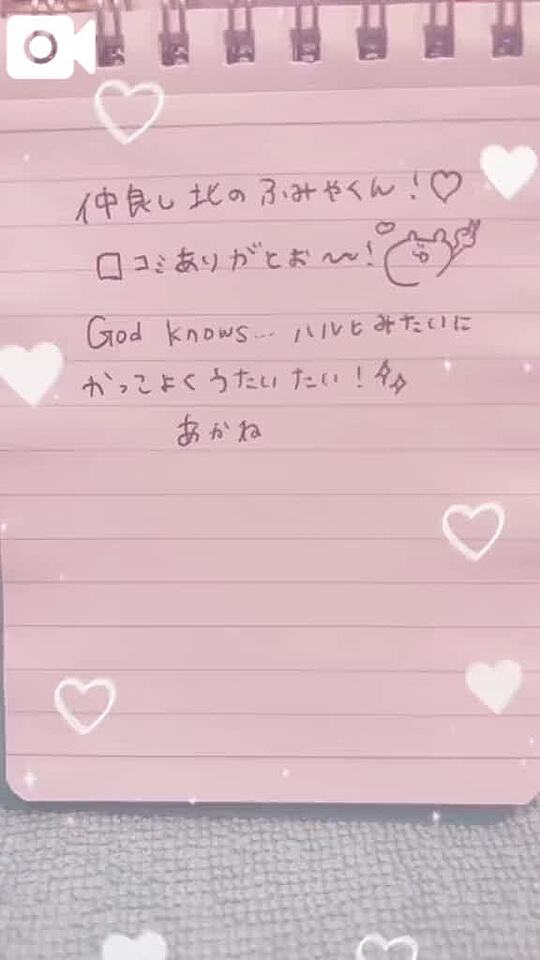 仲良し北のふみやくん!♡
口コミありがとお〜〜!
God knows... ハルヒみたいに
かってよくうたいたい!
あかね